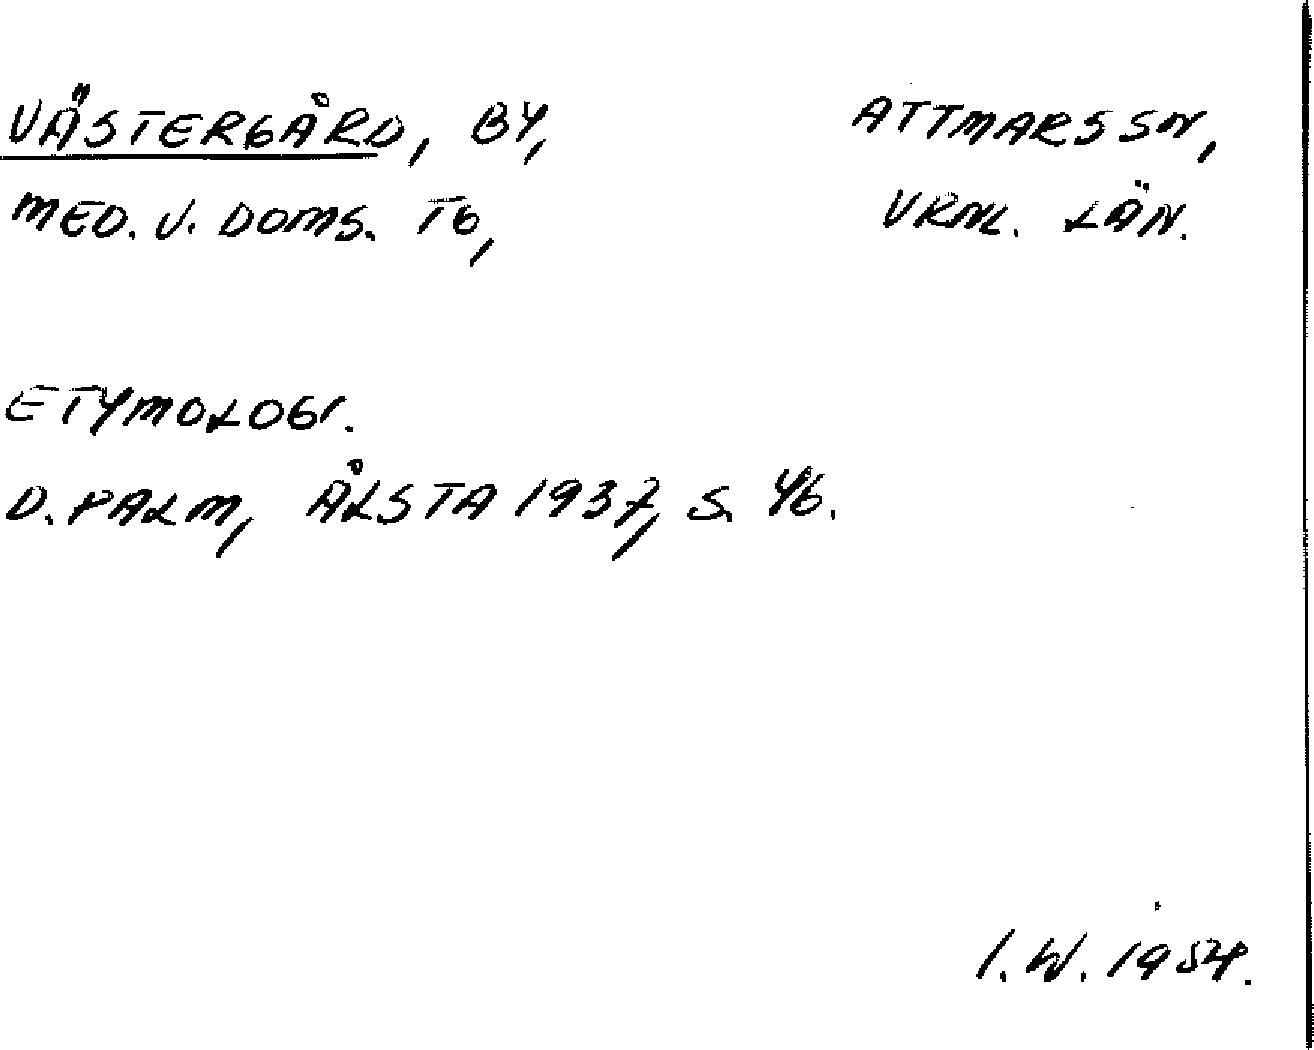 VÄSTERGÅRD, BY, ATTMARS SN,
MED. V. DOMS. TG, VRNL. LÄN.
ETYMOLOGI.
D. PALM, ÅLSTA 1937, S. 46.
I. W. 1954.